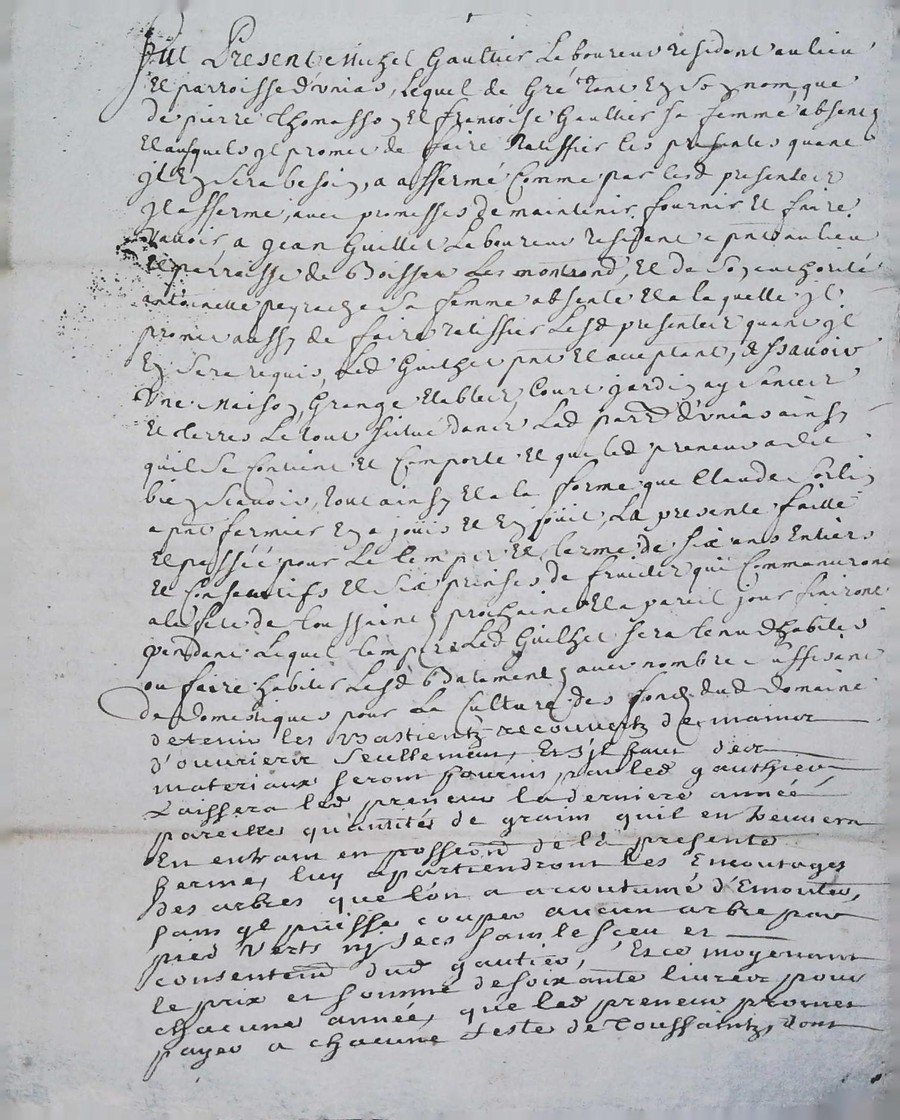 Fut Present Michel Gaultier Laboureur resident au lieu
et parroisse d'unias, lequel de Gré tant en son nom que
de pierre Thomasson et francoise Gaultier sa femme absents
et ausquels yl promet de faire Ratiffier les presentes quant
yl en sera besoin, a affermé Comme par lesd presentes
yl afferme, avec promesses de maintenir, fournir et faire
valloir, a jean Guillet Laboureur residant a pnt au lieu
et parroisse de Boisset Les montrond, et de son authorité
antoinette peyrache sa femme absente et a laquelle yl
promet aussy de faire ratiffier lesd presentes quant yl
en sera requis, led Guilhet pnt et acceptant, A Sçavoir
Une Maison, Grange Etables, Court jardin aysances
et terres Le tout scitué dans Lad parr d'unias ainsy
quil se Contient et Comporte et que led preneur a dit
bien scavoir, tout ainsy et a la forme que Claude
a pnt fermier en a jouis et en jouit, La presente faitte
et passée pour Le temps et terme de six ans Entiers
et Consecutifs et six prinses de fruits qui Commanceront
a la feste de toussaint prochaine et a pareil jour finiront
pendant Lequel temps Led Guilhet sera tenu d'habiter
ou faire habiter Lesd Batiments avec nombre suffisant
de domestiques pour La Culture des fonds dud Domaine
de tenir les Bastients recouverts de mains
d'ouvriers seullement, Et s'yl faut des
materiaux seront fournis par led gauthier
Laissera led preneur la derniere année
pareilles quantités de grains quil en treuvera
En entrant en posseon de la presente
ferme, luy apartiendront les Emoutages
des arbres que l'on a acoutumé d'Emouter,
sans yl puisse couper aucun arbre par
pied verts ny secs sans le sceu et
consentemt dud gautier, Et ce moyenant
le prix et somme de soixante livres pour
chacune année, que led preneur promet
payer a chacune feste de Toussaints, dont